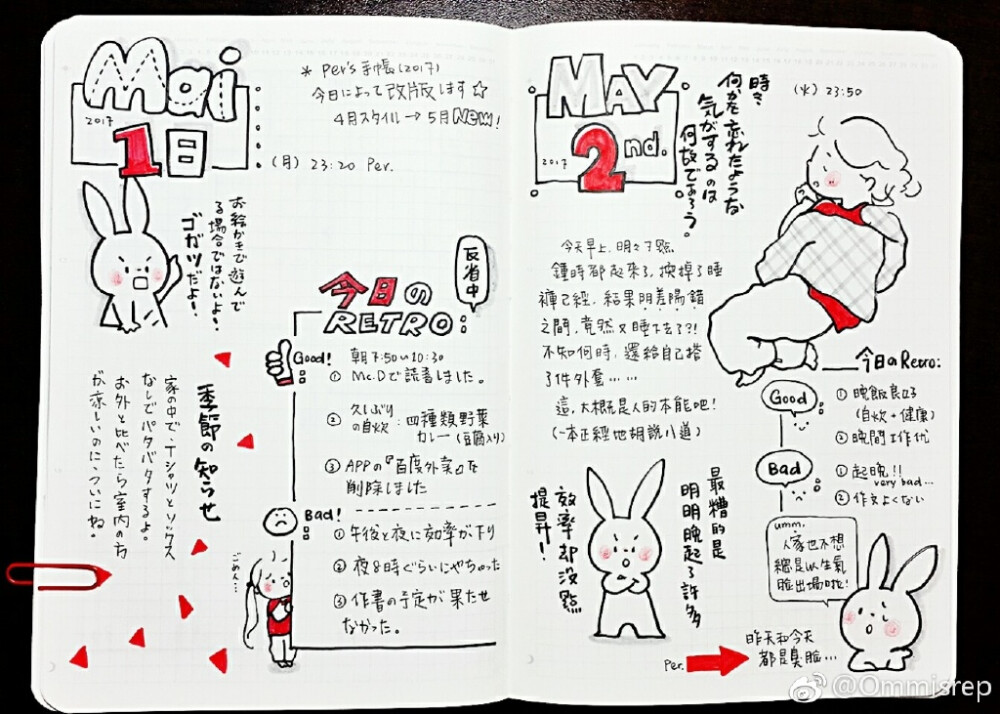 Mai
2017
1日
* Per's 手帳(2017)
今日によって改版します☆
4月スタイル → 5月New!
(月) 23:20 Per.
お絵かきで遊んで
る場合ではないよ!
ゴガツだよ!
反省中
今日の
RETRO:
Good!
朝7:50~10:30
① Mc.Dで読書しました。
② 久しぶり
の自炊:四種類野菜
カレー(豆腐入り)
③ APPの『百度外卖』を
削除しました
Bad!
① 午後と夜に効率が下り
② 夜8時ぐらいに
③ 作書の予定が果たせ
なかった。
ごめん…
季節の知らせ
家の中で、Tシャツとソックス
なしでパタパタするよ。
お外と比べたら室内の方
が涼しいのについにね。
MAY
2017
2nd.
時々、
何かを忘れたような
気がするのは
何故であろう。
(火) 23:50
今天早上,明明7點
鐘時都起來了,換掉了睡
褲已經,結果阴差陽錯
之間,竟然又睡下去了?!
不知何時,還給自己搭
了件外套……
這,大概是人的本能吧!
(一本正經地胡說八道)
今日のRetro:
Good
① 晚飯良好
(自炊+健康)
② 晚間工作忙
Bad
① 起晚!!
very bad…
② 作文よくない
最糟的是
明明晚起了許多
效率却沒點
提昇!
umm.
人家也不想
總是以生氣
臉出場啦!
Per.
昨天和今天
都是臭臉…
@Ommisrep